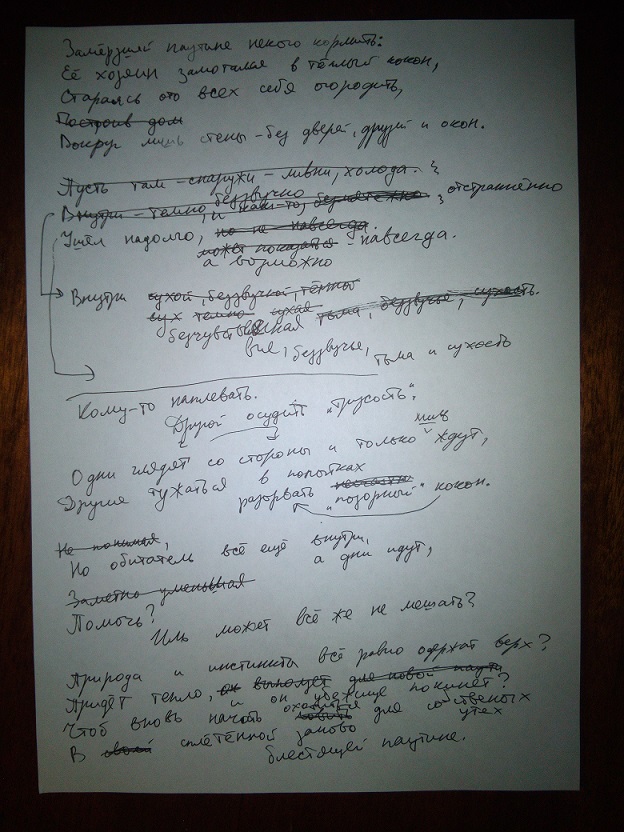 Замёрзшей паутине некого кормить:
Её хозяин замотался в тёплый кокон,
Стараясь ото всех себя огородить,
Построив дом
Вокруг лишь стены – без дверей, друзей и окон.
Пусть там – снаружи – ливни, холода.
беззвучно
Внутри – темно, и как-то, безмятежно, отстранённо
Ушёл надолго, но не навсегда.
может показаться – навсегда.
а возможно
Внутри сухой, беззвучной, тёмный
сух темно сухая
бесчувственная тьма, беззвучье, сухость.
вие, беззвучье, тьма и сухость
Кому-то наплевать.
Другой осудит "трусость".
лишь
Одни глядят со стороны и только ждут,
Другие тужаться в попытках
разорвать "позорный" кокон.
Не понимая,
Но обитатель всё ещё внутри,
а дни идут,
Заметно уменьшая
Помочь?
Иль может всё же не мешать?
Природа и инстинкты всё равно одержат верх?
Придёт тепло, он выползет для новой
и он убежище покинет?
Чтоб вновь начать охотиться для собственных
ловить утех
В своей сплетённой заново
блестящей паутине.